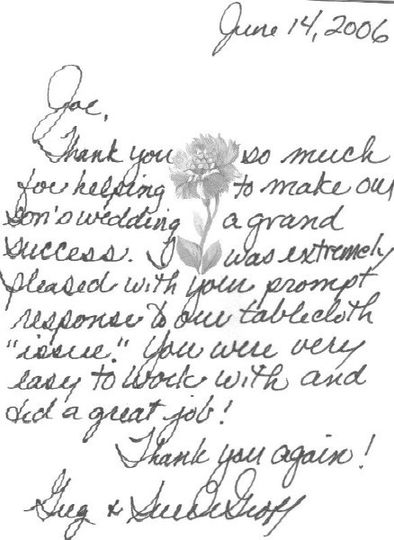 June 14, 2006
Joe,
Thank you so much
for helping to make our
son's wedding a grand
success. I was extremely
pleased with your prompt
response to our tablecloth
"issue." You were very
easy to work with and
did a great job!
Thank you again!
Greg & Sue DeGroff